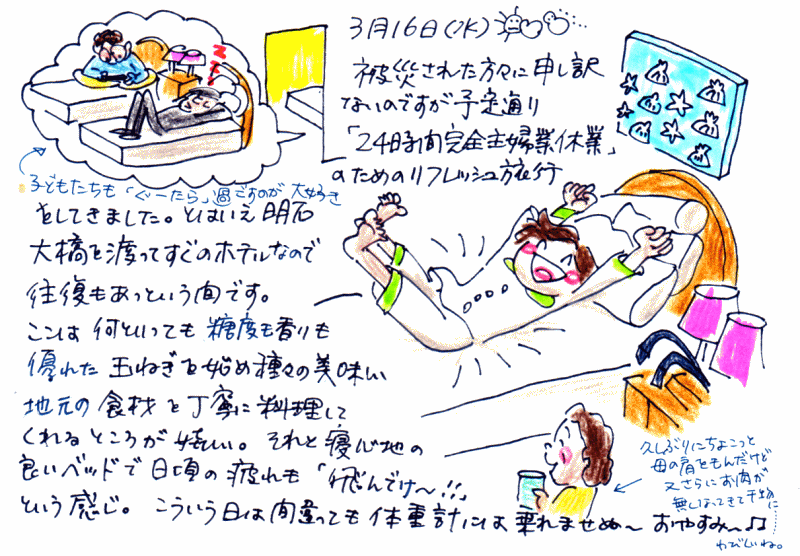 3月16日(水)
被災された方々に申し訳
ないのですが予定通り
「24時間完全主婦業休業」
のためのリフレッシュ旅行
をしてきました。とはいえ明石
大橋を渡ってすぐのホテルなので
往復もあっという間です。
ここは何といっても糖度も香りも
優れた玉ねぎを始め種々の美味しい
地元の食材を丁寧に料理して
くれるところが嬉しい。それと寝心地の
良いベッドで日頃の疲れも「飛んでけ〜!!」
という感じ。こういう日は間違っても体重計には乗れませぬ〜おやすみ〜♫
子どもたちも「ぐーたら」過ごすのが大好き
久しぶりにちょこっと
母の肩をもんだけど
又さらにお肉が
無くなってきて干物に
わびしいね。